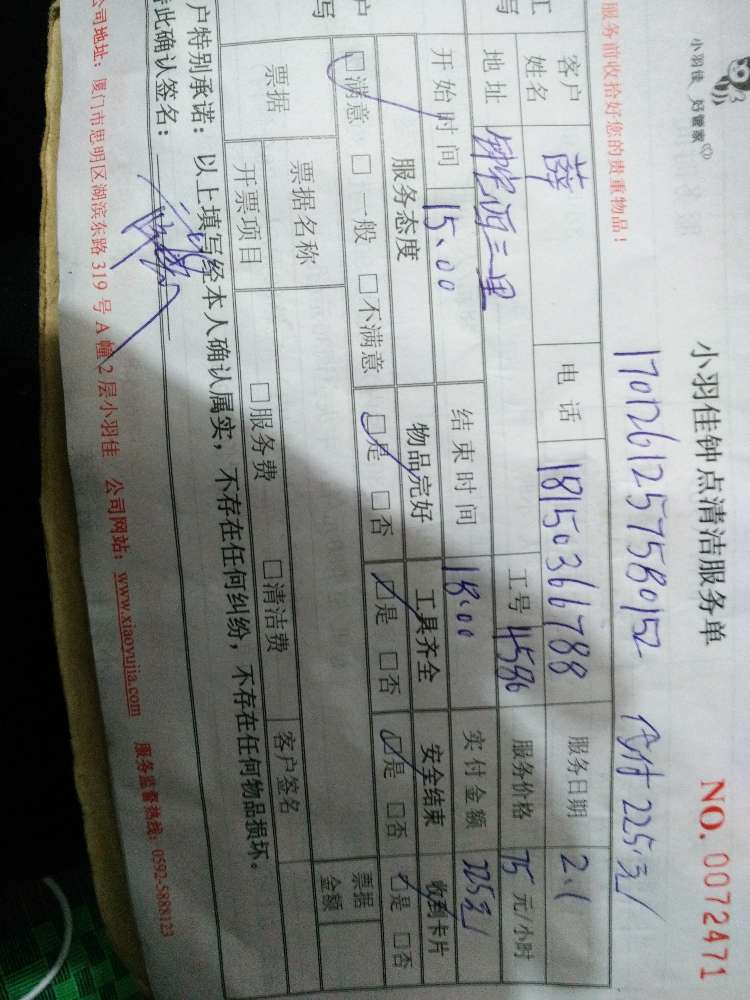 小羽佳 好管家
小羽佳钟点清洁服务单
NO. 0072471
1701261257580152 付 225元
服务前收拾好您的贵重物品！
客户姓名 薛 电话 18150366788 服务日期 2.1
地址 三里 工号 4586 服务价格 75 元/小时
开始时间 15.00 结束时间 18.00 实付金额 225元
服务态度 物品完好 工具齐全 安全结束 收到卡片
☑满意 □一般 □不满意 ☑是 □否 ☑是 □否 ☑是 □否 ☑是 □否
票据 票据名称 □服务费 □清洁费 客户签名 票据金额
开票项目
户特别承诺：以上填写经本人确认属实，不存在任何纠纷，不存在任何物品损坏。
此确认签名：
公司地址：厦门市思明区湖滨东路 319 号 A 幢 2 层小羽佳 公司网站：www.xiaoyujia.com 服务监督热线：0592-5888123